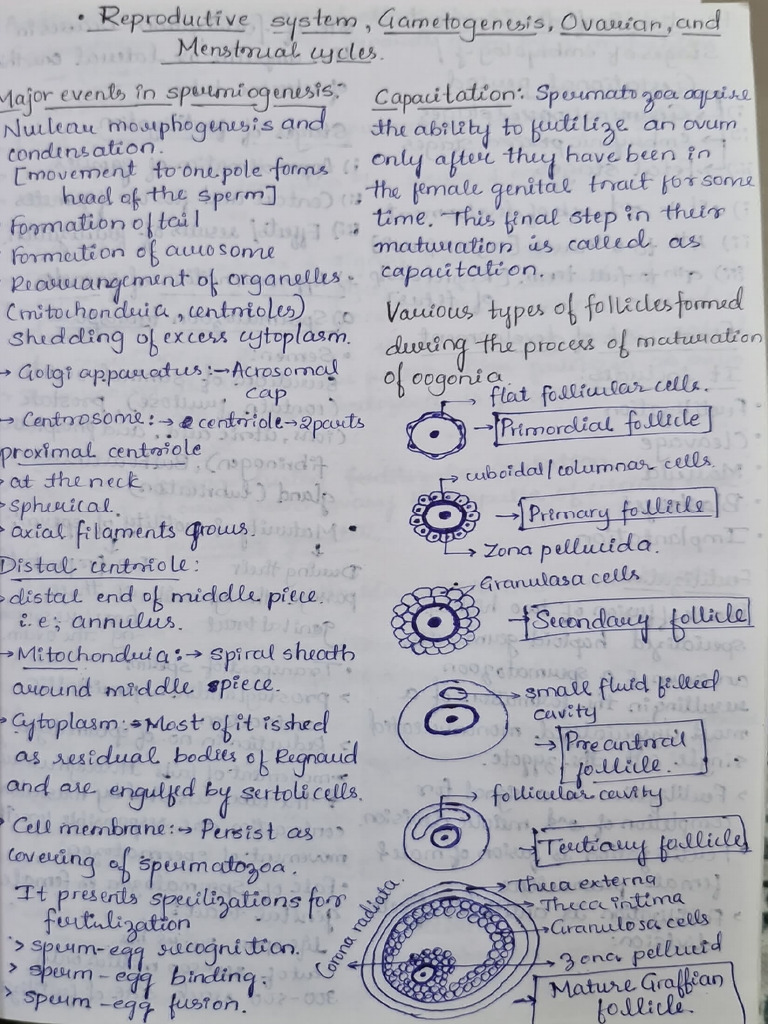 • Reproductive system, Gametogenesis, Ovarian, and
Menstrual cycles.
Major events in spermiogenesis:
Nuclear morphogenesis and
condensation.
[movement to one pole forms
head of the sperm]
Formation of tail
Formation of acrosome
Rearrangement of organelles.
(mitochondria, centrioles)
shedding of excess cytoplasm.
→ Golgi apparatus :→ Acrosomal
cap
→ Centrosome :→ centriole → 2 parts
proximal centriole
• at the neck
• spherical.
• axial filaments grows.
Distal centriole:
• distal end of middle piece.
i.e; annulus.
→ Mitochondria :→ Spiral sheath
around middle piece.
• Cytoplasm :→ Most of it is shed
as residual bodies of Regnaud
and are engulfed by sertoli cells.
• Cell membrane :→ Persist as
covering of spermatozoa.
It presents specilizations for
fertilization
> sperm-egg recognition.
> sperm-egg binding.
> sperm-egg fusion.
Capacitation: Spermatozoa aquire
the ability to fertilize an ovum
only after they have been in
the female genital tract for some
time. This final step in their
maturation is called as
capacitation.
Various types of follicles formed
during the process of maturation
of oogonia
flat follicular cells.
→ Primordial follicle
cuboidal/columnar cells.
→ Primary follicle
Zona pellucida.
Granulasa cells
→ Secondary follicle
small fluid filled
cavity
→ Preantrail
follicle.
follicular cavity
→ Tertiary follicle
Corona radiata.
Theca externa
Theca intima
Granulosa cells
Zona pellucid
→ Mature Graffian
follicle.